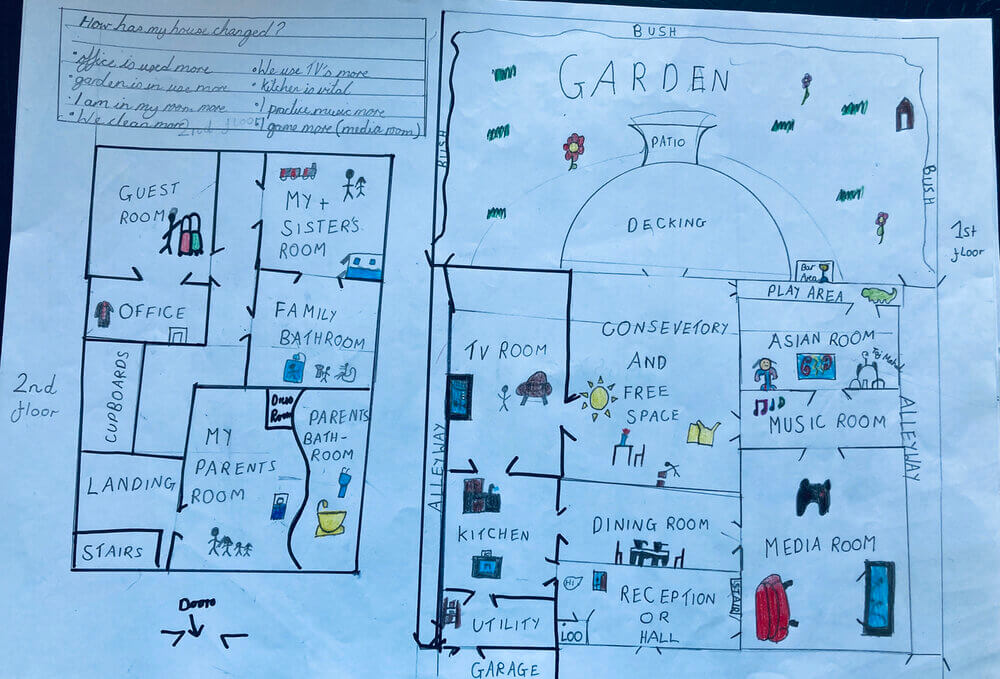 How has my house changed?
• office is used more
• garden is in use more
• I am in my room more
• We clean more
• We use TV's more
• kitchen is vital
• I practice music more
• I game more (media room)
2nd floor
GUEST
ROOM
MY +
SISTER'S
ROOM
OFFICE
FAMILY
BATHROOM
2nd
floor
CUPBOARDS
MY
PARENTS
ROOM
PARENTS
BATH-
ROOM
LANDING
STAIRS
Doors
BUSH
GARDEN
BUSH
BUSH
PATIO
DECKING
1st
floor
Bar
Area
PLAY AREA
TV ROOM
CONSEVETORY
AND
FREE
SPACE
ASIAN ROOM
Taj Mahal
MUSIC ROOM
ALLEYWAY
ALLEYWAY
KITCHEN
DINING ROOM
MEDIA ROOM
HI
RECEPTION
OR
HALL
STAIR
LOO
UTILITY
GARAGE